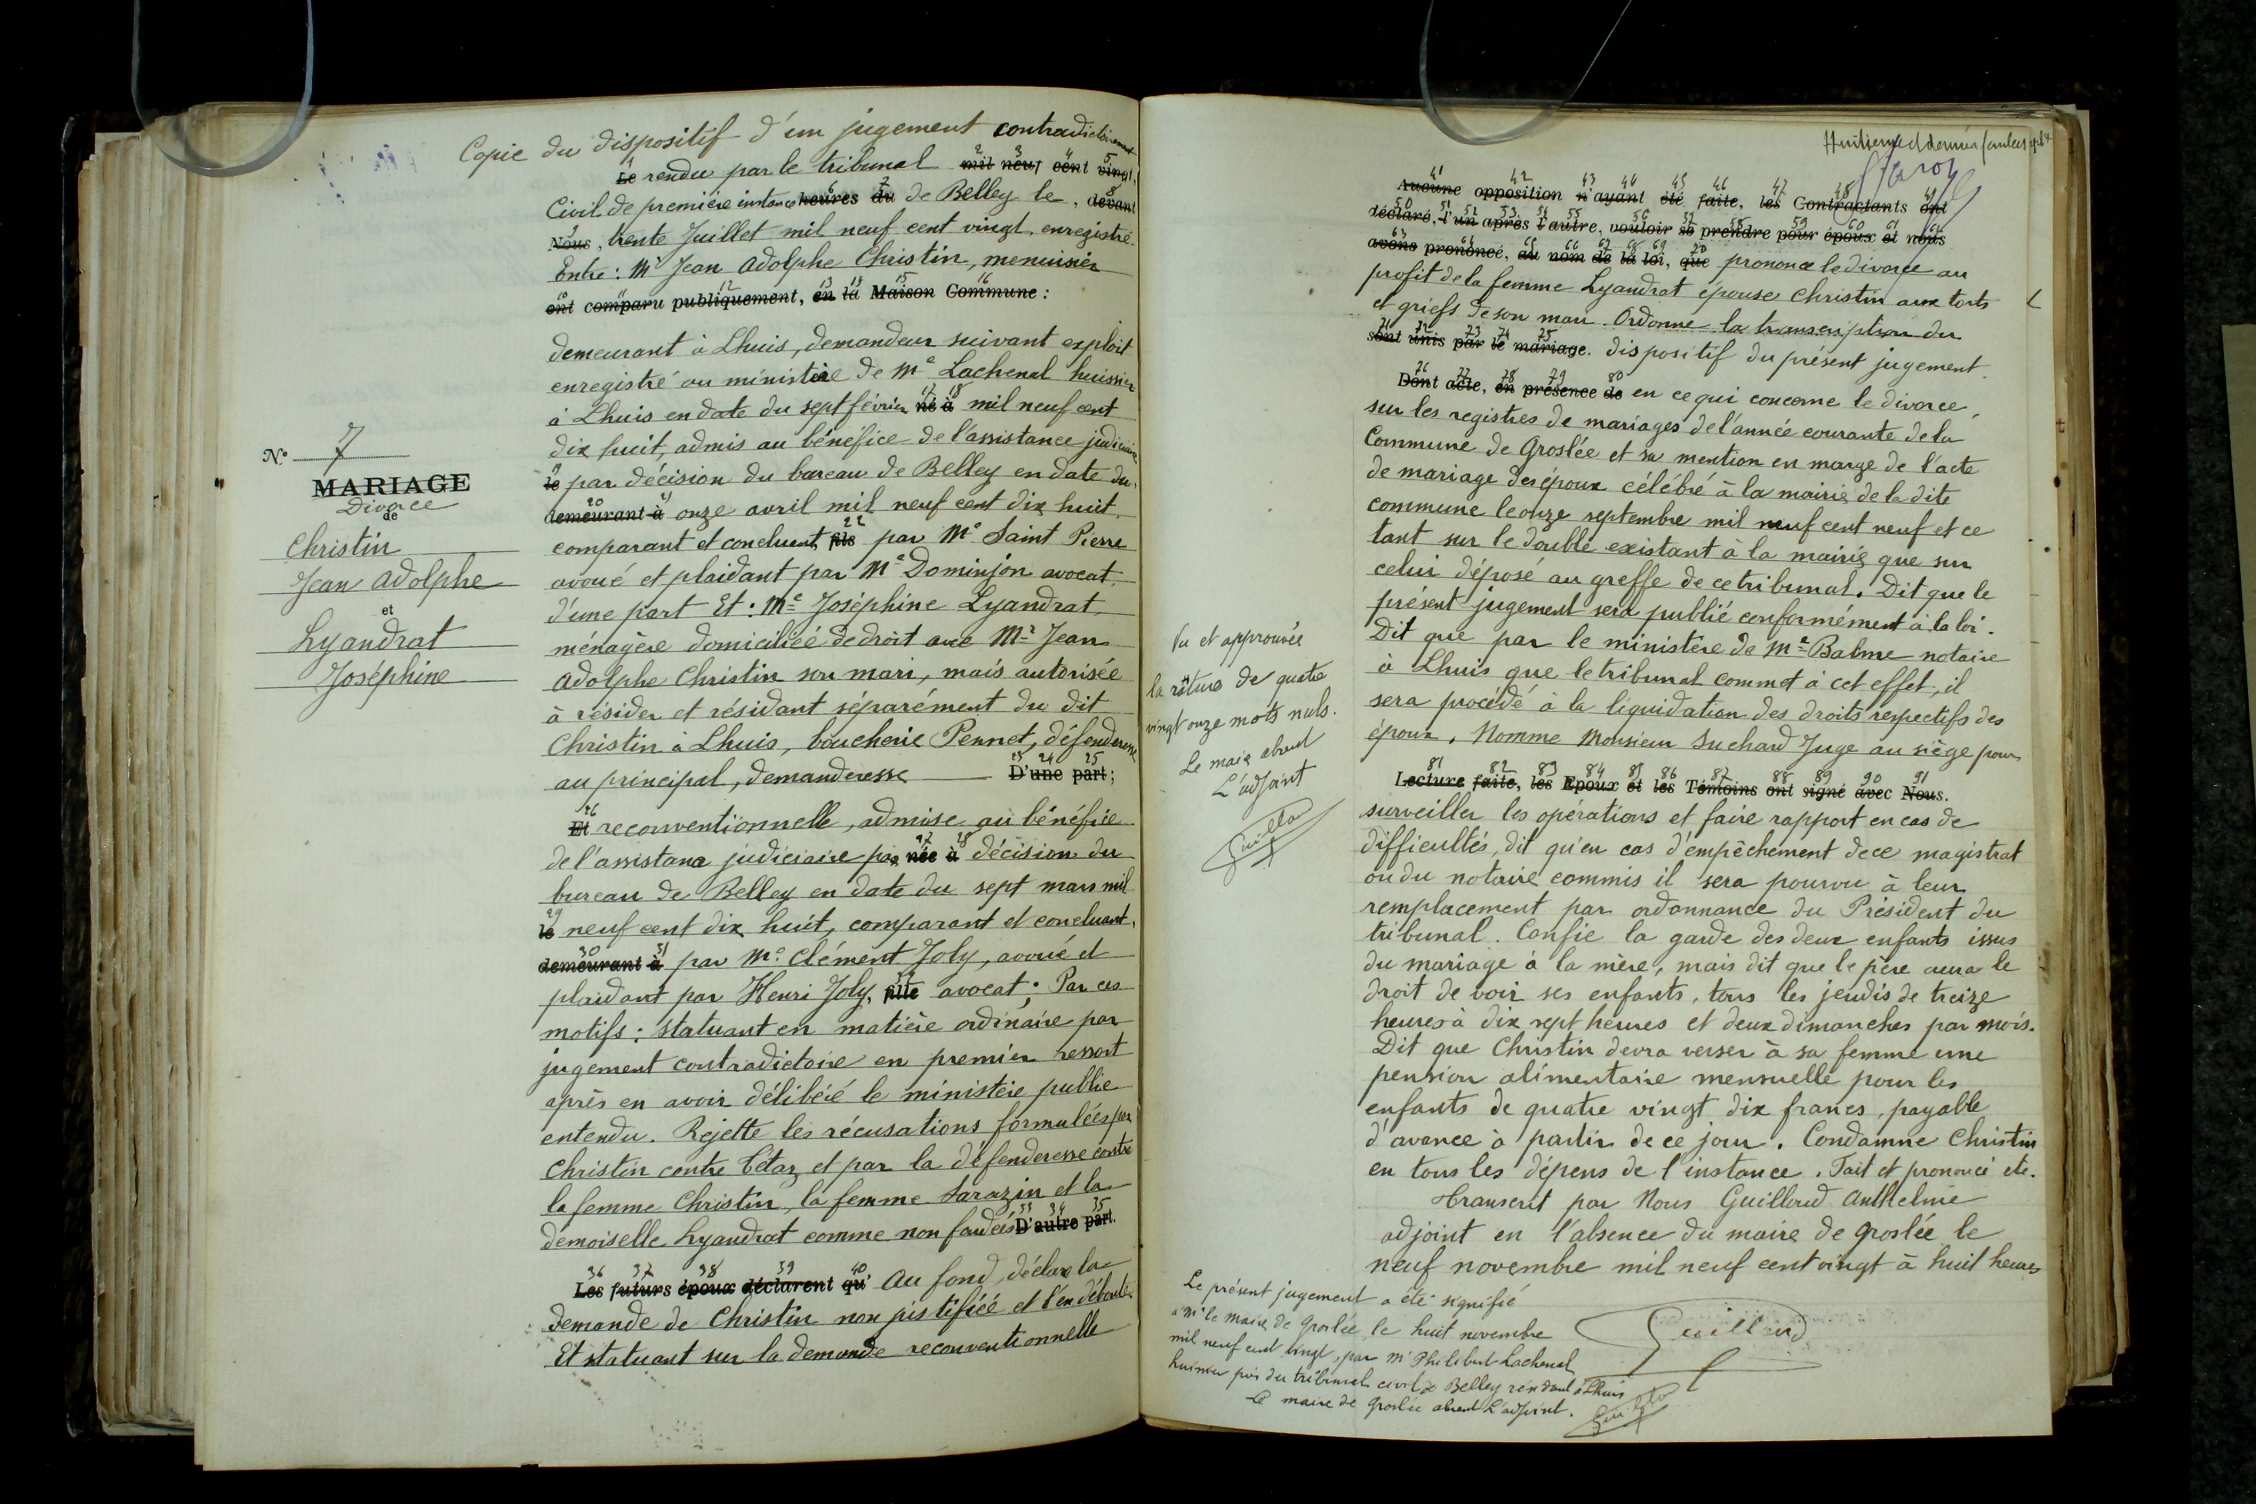 Copie du dispositif d'un jugement contradictoirement
1 2 3 4 5
Le rendu par le tribunal mil neuf cent vingt,
6 7 8
Civil de première instance heures du de Belley le , devant
9
Nous, trente Juillet mil neuf cent vingt, enregistré.
Entre : Mr Jean Adolphe Christin, menuisier
10 11 12 13 14 15 16
ont comparu publiquement, en la Maison Commune :
demeurant à Lhuis, demandeur suivant exploit
enregistré au ministère de Me Lachenal huissier
17 18
à Lhuis en date du sept février né à mil neuf cent
dix huit, admis au bénéfice de l'assistance judiciaire
19
le par décision du bureau de Belley en date du
20 21
demeurant à onze avril mil neuf cent dix huit
22
comparant et concluant, fils par Me Saint Pierre
avoué et plaidant par Me Dominjon avocat
d'une part Et : Me Joséphine Lyandrat
ménagère domiciliée de droit avec Mr Jean
Adolphe Christin son mari, mais autorisée
à résider et résidant séparément du dit
Christin à Lhuis, boucherie Pennet, défenderesse
23 24 25
au principal, demanderesse D'une part;
26
Et reconventionnelle, admise au bénéfice
27 28
de l'assistance judiciaire par née à décision du
bureau de Belley en date du sept mars mil
29
le neuf cent dix huit, comparant et concluant,
30 31
demeurant à par Me Clément Joly, avoué et
32
plaidant par Henri Joly, fille avocat; Par ces
motifs : statuant en matière ordinaire par
jugement contradictoire en premier ressort
après en avoir délibéré le ministère public
entendu. Rejette les récusations formulées par
Christin contre Cétaz et par la défenderesse contre
la femme Christin, la femme Sarazin et la
33 34 35
demoiselle Lyandrat comme non fondées D'autre part.
36 37 38 39 40
Les futurs époux déclarent qu' Au fond, déclare la
demande de Christin non justifiée et l'en déboute
Et statuant sur la demande reconventionnelle
N° 7
MARIAGE
Divorce
de
Christin
Jean Adolphe
et
Lyandrat
Joséphine
Huitième et dernier feuillet
41 42 43 44 45 46 47 48 49
Aucune opposition n'ayant été faite, les Contractants ont
50 51 52 53 54 55 56 57 58 59 60 61 62
déclaré, l'un après l'autre, vouloir se prendre pour époux et nous
63 64 65 66 67 68 69 70
avons prononcé, au nom de la loi, que prononce le divorce au
profit de la femme Lyandrat épouse Christin aux torts
et griefs de son mari. Ordonne la transcription du
71 72 73 74 75
sont unis par le mariage. dispositif du présent jugement
76 77 78 79 80
Dont acte, en présence de en ce qui concerne le divorce,
sur les registres de mariages de l'année courante de la
Commune de Groslée et sa mention en marge de l'acte
de mariage des époux célébré à la mairie de la dite
commune le onze septembre mil neuf cent neuf et ce
tant sur le double existant à la mairie que sur
celui déposé au greffe de ce tribunal. Dit que le
présent jugement sera publié conformément à la loi.
Dit que par le ministère de Me Balme notaire
à Lhuis que le tribunal commet à cet effet, il
sera procédé à la liquidation des droits respectifs des
époux. Nomme Monsieur Suchard Juge au siège pour
81 82 83 84 85 86 87 88 89 90 91
Lecture faite, les Epoux et les Témoins ont signé avec Nous.
surveiller les opérations et faire rapport en cas de
difficultés, dit qu'en cas d'empêchement de ce magistrat
ou du notaire commis il sera pourvu à leur
remplacement par ordonnance du Président du
tribunal. Confie la garde des deux enfants issus
du mariage à la mère, mais dit que le père aura le
droit de voir ses enfants, tous les jeudis de treize
heures à dix sept heures et deux dimanches par mois.
Dit que Christin devra verser à sa femme une
pension alimentaire mensuelle pour les
enfants de quatre vingt dix francs, payable
d'avance à partir de ce jour. Condamne Christin
en tous les dépens de l'instance. Fait et prononcé etc.
Transcrit par Nous Guilloud Anthelme
adjoint en l'absence du maire de Groslée le
neuf novembre mil neuf cent vingt à huit heures
Guilloud
Vu et approuvée
la râture de quatre
vingt onze mots nuls.
Le maire absent
L'adjoint
Guilloud
Le présent jugement a été signifié
à Mr le Maire de Groslée le huit novembre
mil neuf cent vingt, par Mr Philibert Lachenal
huissier près du tribunal civil de Belley résidant à Lhuis
Le maire de Groslée absent L'adjoint.
Guilloud